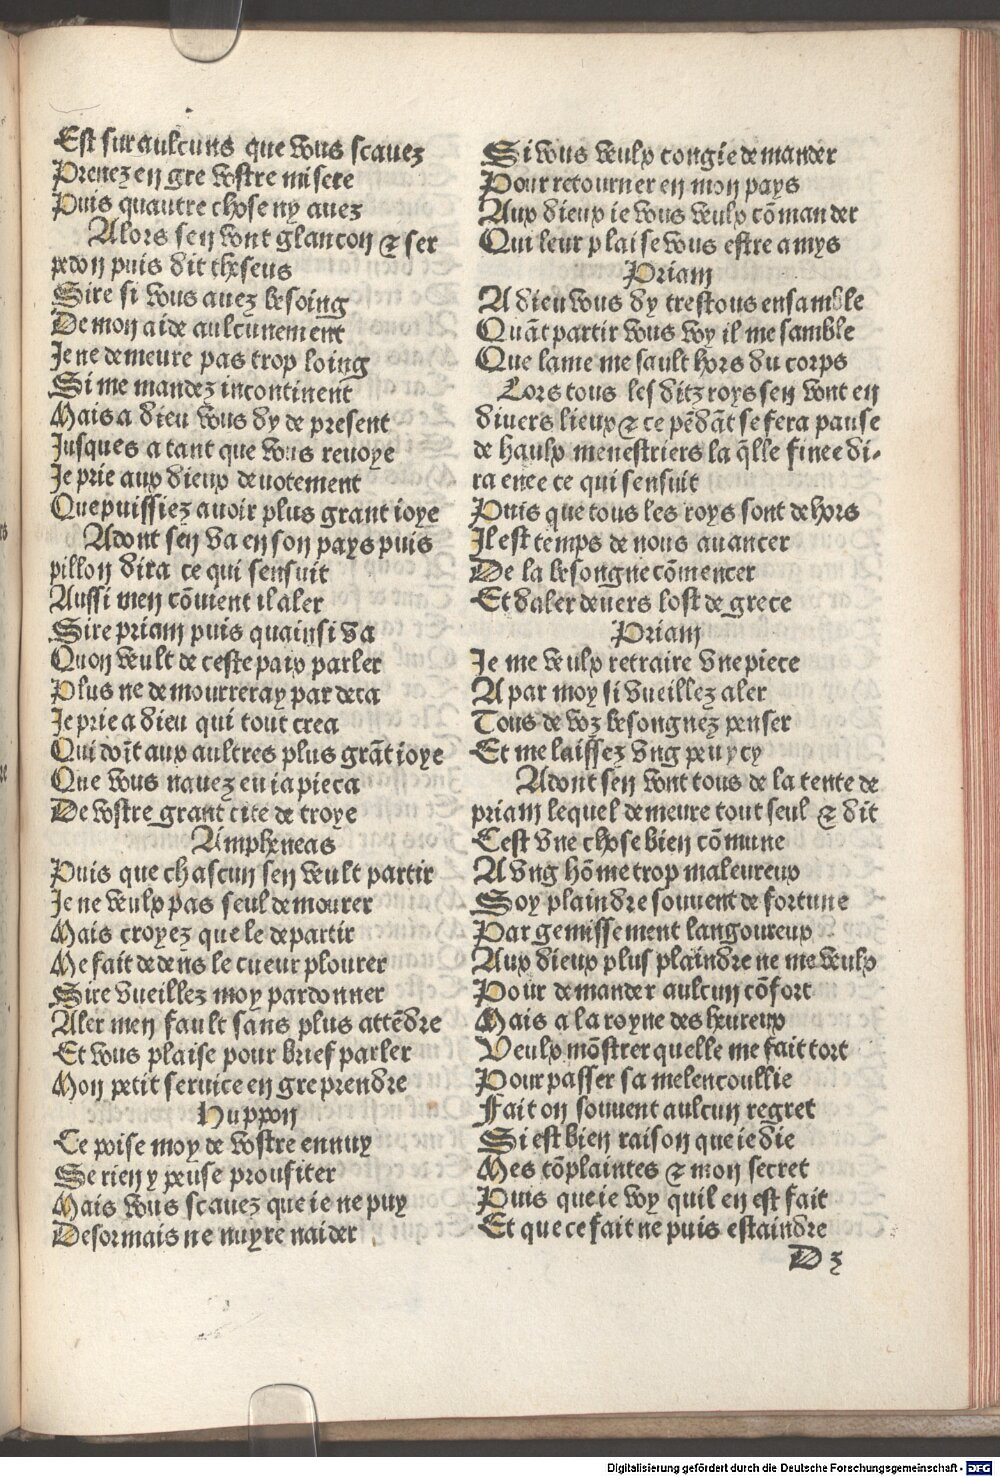 Est sur aulcuns que vous scauez
Prenez en gre vostre misere
Puis quautre chose ny auez
Alors sen vont glancon & ser
pedon puis dit theseus
Sire si vous auez besoing
De mon aide aulcunement
Je ne demeure pas trop loing
Si me mandez incontinent
Mais a dieu vous dy de present
Jusques a tant que vous reuoye
Je prie aux dieux deuotement
Que puissiez auoir plus grant ioye
Adont sen va en son pays puis
pillon dira ce qui sensuit
Aussi men cõuient il aler
Sire priam puis quainsi va
Quon veult de ceste paix parler
Plus ne demourreray par deca
Je prie a dieu qui tout crea
Qui doit aux aultres plus grãt ioye
Que vous nauez eu ia pieca
De vostre grant cite de troye
Ampheneas
Puis que chascun sen veult partir
Je ne veulx pas seul demourer
Mais croyez que le departir
Me fait dedẽs le cueur plourer
Sire vueillez moy pardonner
Aler men fault sans plus attẽdre
Et vous plaise pour brief parler
Mon petit seruice en gre prendre
Huppon
Ce poise moy de vostre ennuy
Se rien y peuse proufiter
Mais vous scauez que ie ne puy
Desormais ne nuyre naider
Si vous veulx congie demander
Pour retourner en mon pays
Aux dieux ie vous veulx cõmander
Qui leur plaise vous estre amys
Priam
A dieu vous dy trestous ensamble
Quãt partir vous voy il me samble
Que lame me sault hors du corps
Lors tous les ditz roys sen vont en
diuers lieux & ce pẽdãt se fera pause
de haulx menestriers la q̃lle finee di-
ra enee ce qui sensuit
Puis que tous les roys sont dehors
Il est temps de nous auancer
De la besongne cõmencer
Et daler deuers lost de grece
Priam
Je me veulx retraire vne piece
A par moy si vueillez aler
Tous de voz besongnez penser
Et me laissez vng peu ycy
Adont sen vont tous de la tente de
priam lequel demeure tout seul & dit
Cest vne chose bien cõmune
A vng hõme trop maleureux
Soy plaindre souuent de fortune
Par gemissement langoureux
Aux dieux plus plaindre ne me veulx
Pour demander aulcun cõfort
Mais a la royne des heureux
Veulx mõstrer quelle me fait tort
Pour passer sa melencoullie
Fait on souuent aulcun regret
Si est bien raison que ie die
Mes cõplaintes & mon secret
Puis que ie voy quil en est fait
Et que ce fait ne puis estaindre
D z
Digitalisierung gefördert durch die Deutsche Forschungsgemeinschaft - DFG